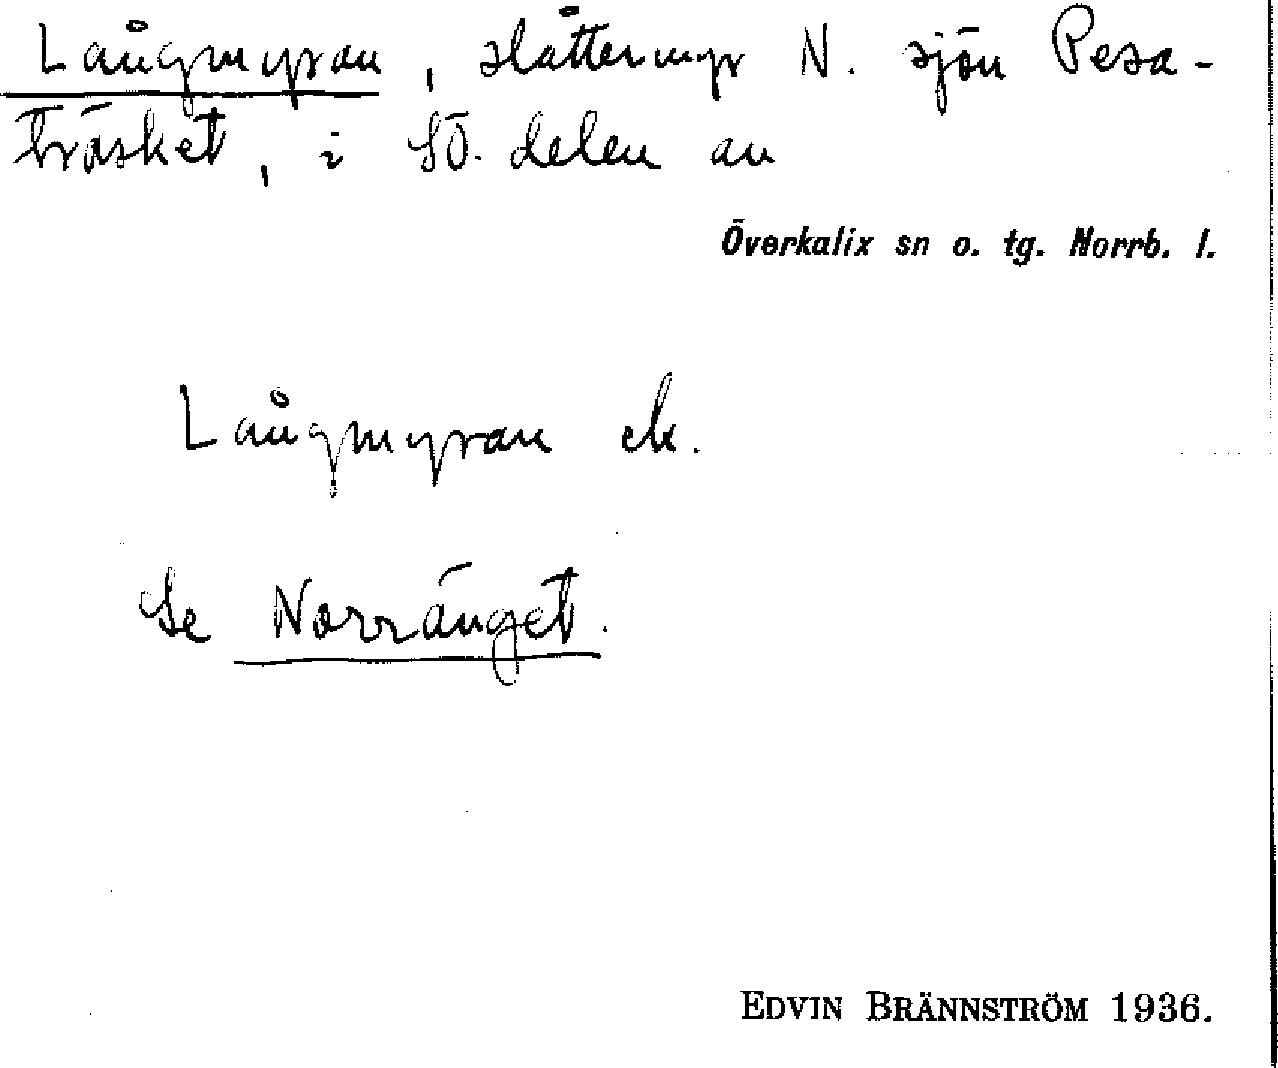 Långmyran, slåttermyr N. sjön Pesa-
träsket, i SÖ. delen av
Överkalix sn o. tg. Norrb. l.
Långmyran ek.
Se Norränget.
EDVIN BRÄNNSTRÖM 1936.